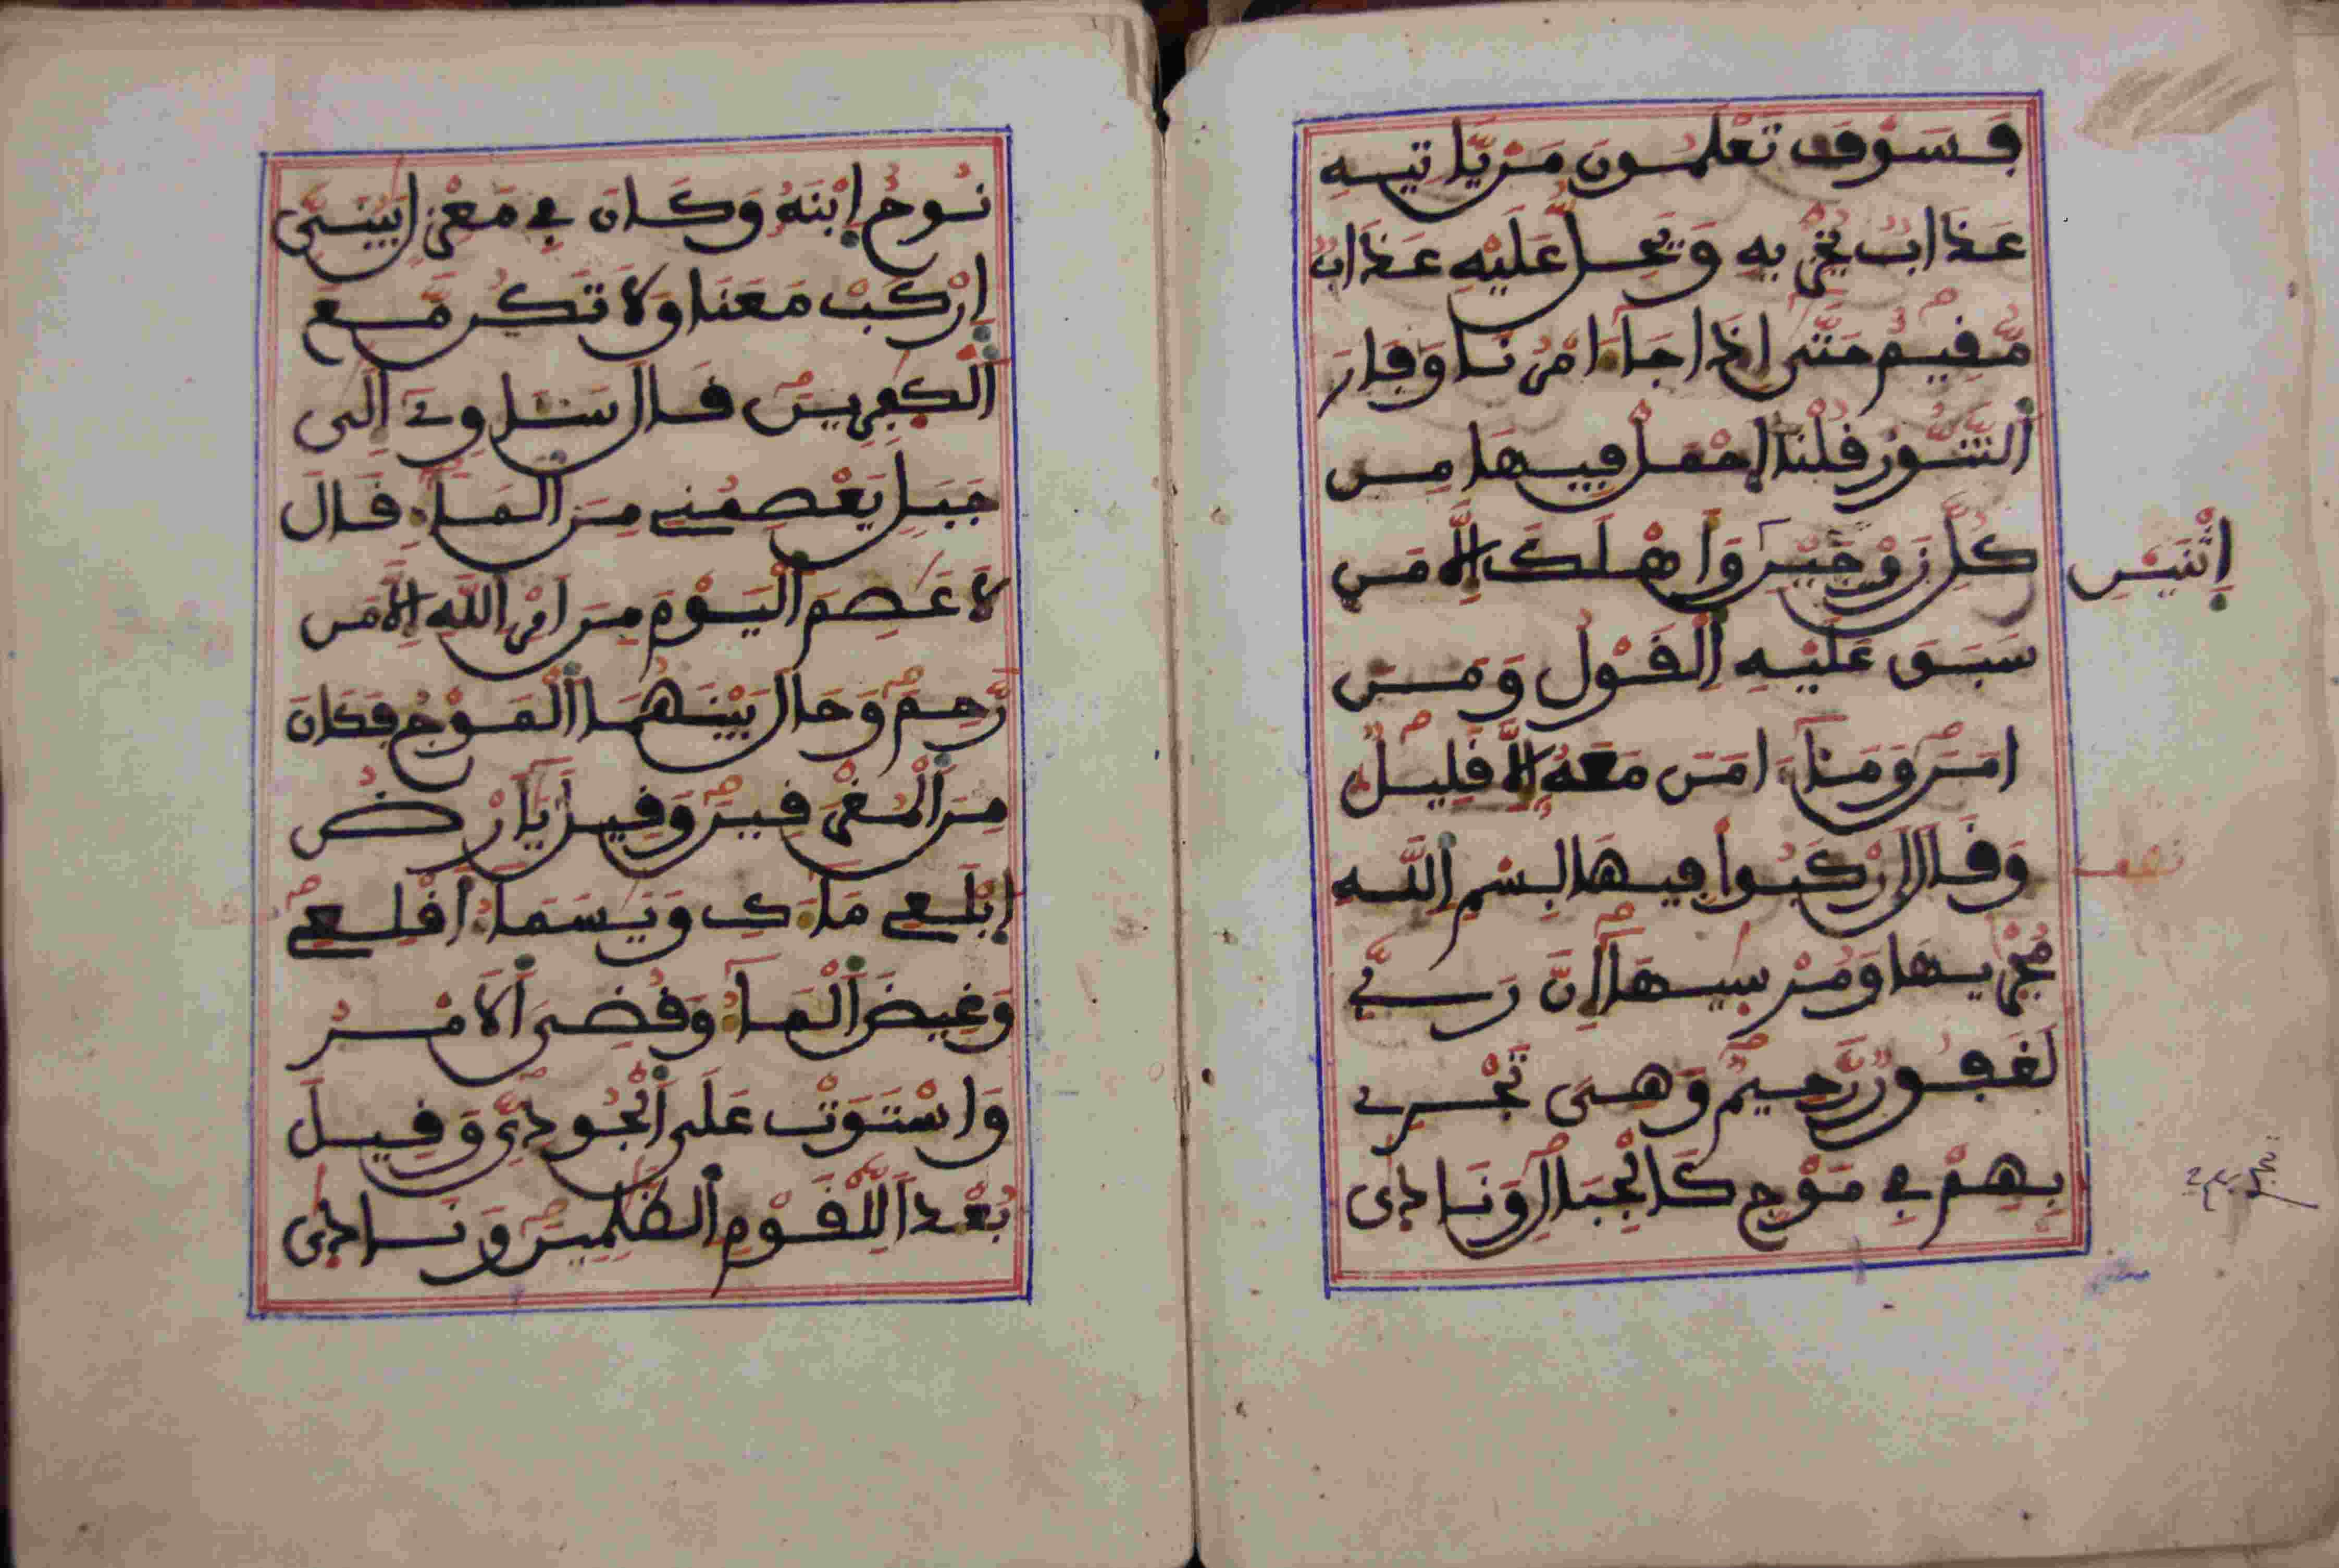 فَسَوْفَ تَعْلَمُونَ مَنْ يَّاتِيهِ
عَذَابٌ يُخْزِيهِ وَيَحِلُّ عَلَيْهِ عَذَابٌ
مُّقِيمٌ حَتَّىٰ إِذَا جَآءَ امْرُنَا وَفَارَ
اَلتَّنُّورُ قُلْنَا اَحْمِلْ فِيهَا مِن
كُلِّ زَوْجَيْنِ وَأَهْلَكَ إِلَّا مَن
اِثْنَيْنِ
سَبَقَ عَلَيْهِ اِلْقَوْلُ وَمَنَ
امَنَ وَمَآ ءَامَنَ مَعَهُ إِلَّا قَلِيلٌ
وَقَالَ اَرْكَبُوا فِيهَا بِسْمِ اِللَّهِ
نصف
مُجْريهَا وَمُرْسَيٰهَآ إِنَّ رَبِّي
لَغَفُورٌ رَّحِيمٌ وَهِىَ تَجْرِے
بِهِمْ فِے مَوْجٍ كَالْجِبَالِ وَنَادَىٰ
نُوحٌ اِبْنَهُ وَكَانَ فِے مَعْزِلٍ يَٰبُنَيِّ
اِرْكَبْ مَعَنَا وَلَا تَكُن مَّعَ
اَلْكَٰفِرِينَ قَالَ سَـَٔاوِے إِلَىٰ
جَبَلٍ يَعْصِمُنِے مِنَ اَلْمَآءِ قَالَ
لَا عَاصِمَ اَلْيَوْمَ مِنَ امْرِ اِللَّهِ إِلَّا مَن
رَّحِمَ وَحَالَ بَيْنَهُمَا اَلْمَوْجُ فَكَانَ
مِنَ اَلْمُغْرَقِينَ وَقِيلَ يَٰٓأَرْضُ
اُبْلَعِے مَآءَكِ وَيَٰسَمَآءُ أَقْلِعِے
وَغِيضَ اَلْمَآءُ وَقُضِىَ اَلَامْرُ
وَاسْتَوَتْ عَلَى اَلْجُودِيِّ وَقِيلَ
بُعْدًا لِّلْقَوْمِ اِلظَّٰلِمِينَ وَنَادَىٰ